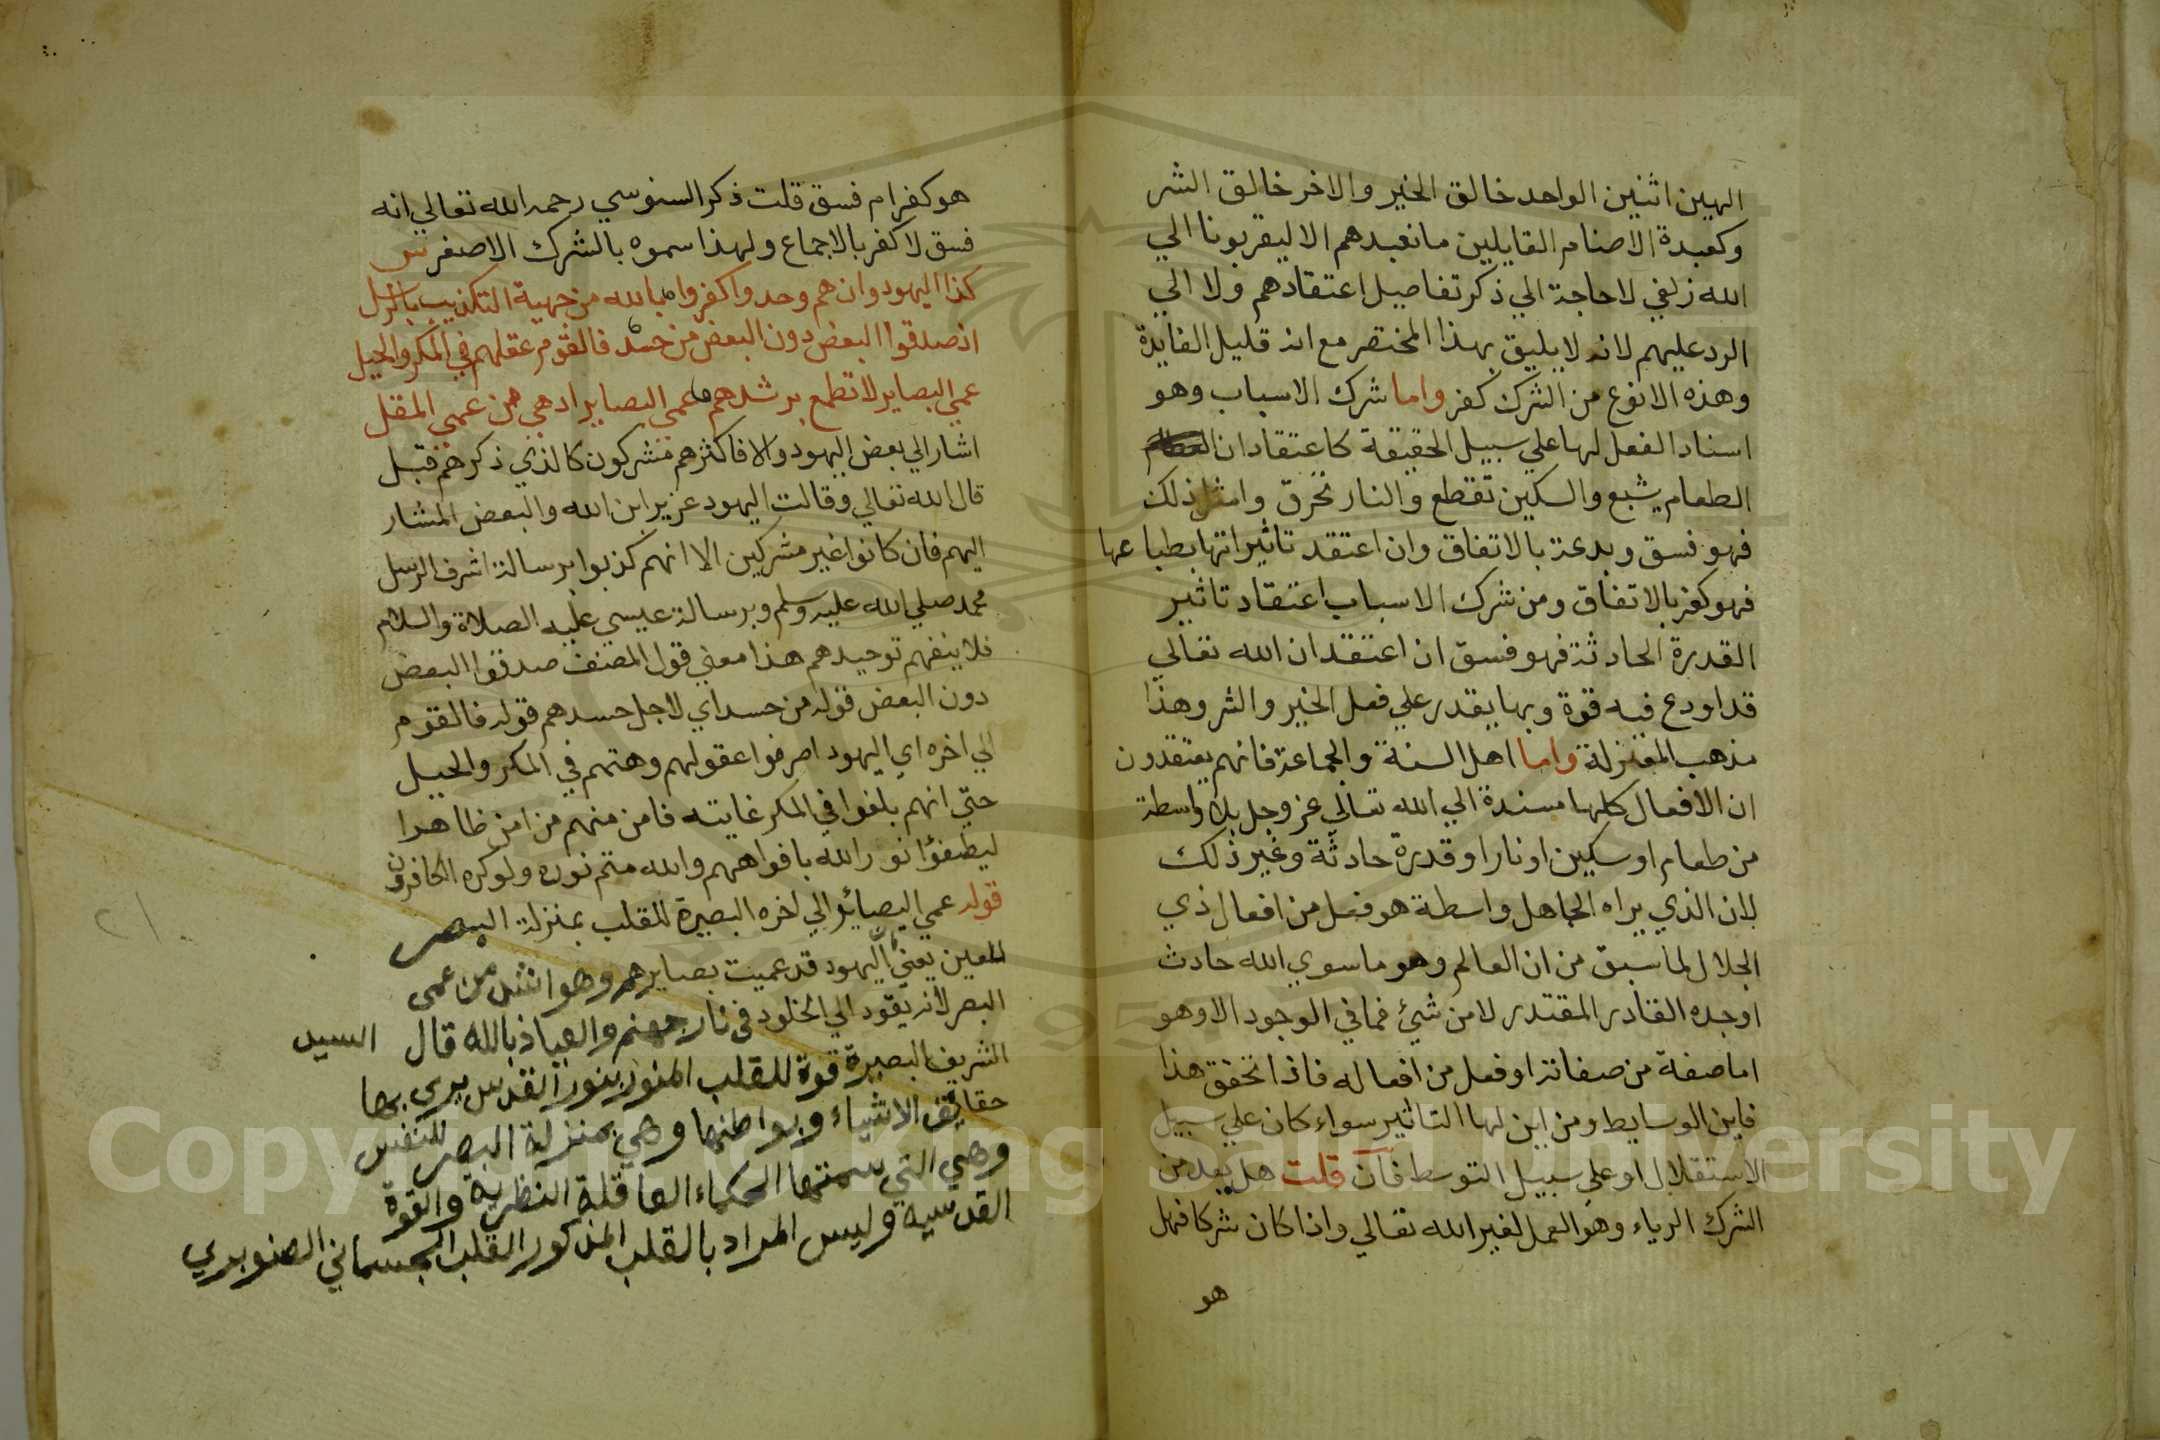 الهين اثنين الواحد خالق الخير والاخر خالق الشر
وكعبدة الاصنام القايلين ما نعبدهم الا ليقربونا الي
الله زلفي لا حاجة الي ذكر تفاصيل اعتقادهم ولا الي
الرد عليهم لانه لا يليق بهذا المختصر مع انه قليل الفايدة
وهذه الانوع من الشرك كفر واما شرك الاسباب وهو
اسناد الفعل لها علي سبيل الحقيقة كاعتقاد ان
الطعام يشبع والسكين تقطع والنار تحرق وامثل ذلك
فهو فسق وبدعة بالاتفاق وان اعتقد تاثيراتها بطباعها
فهو كفر بالاتفاق ومن شرك الاسباب اعتقاد تاثير
القدرة الحادثة فهو فسق ان اعتقد ان الله تعالي
قد اودع فيه قوة وبها يقدر علي فعل الخير والشر وهذا
مذهب المعتزلة واما اهل السنة والجماعة فانهم يعتقدون
ان الافعال كلها مسندة الي الله تعالي عز وجل بلا واسطة
من طعام او سكين او نار او قدرة حادثة وغير ذلك
لان الذي يراه الجاهل واسطة هو فعل من افعال ذي
الجلال لما سبق من ان العالم وهو ما سوي الله حادث
اوجده القادر المقتدر لا من شيئ فما في الوجود الا وهو
اما صفة من صفاته او فعل من افعاله فاذا تحقق هذا
فاين الوسايط ومن اين لها التاثير سواء كان علي سبيل
الاستقلال او علي سبيل التوسط فان قلت هل يعد من
الشرك الرياء وهو العمل لغير الله تعالي واذا كان شركا فهل
هو
هو كفر ام فسق قلت ذكر السنوسي رحمه الله تعالي انه
فسق لا كفر بالاجماع ولهذا سموه بالشرك الاصغر ص
كذا اليهود وان هم وحدوا كفروا بالله من جهة التكذيب بالرسل
اذ صدقوا البعض دون البعض من حسد فالقوم عقلهم في المكر والحيل
عمي البصاير لا تطمع برشدهم عمي البصاير ادهي من عمي المقل
اشار الي بعض اليهود والا فاكثرهم مشركون كالذي ذكرهم قبل
قال الله تعالي وقالت اليهود عزير ابن الله والبعض المشار
اليهم فان كانوا غير مشركين الا انهم كذبوا برسالة اشرف الرسل
محمد صلي الله عليه وسلم وبرسالة عيسي عليه الصلاة والسلام
فلا ينفهم توحيدهم هذا معني قول المصنف صدقوا البعض
دون البعض قوله من حسد اي لاجل حسدهم قوله فالقوم
الي اخره اي اليهود اصرفوا عقولهم وهتمهم في المكر والحيل
حتي انهم بلغوا في المكر غايته فامن منهم من امن ظاهرا
ليطفؤا نور الله بافواههم والله متم نوره ولو كره الكافرون
قوله عمي البصائر الي اخره البصيرة للقلب بمنزلة البصر
للعين يعني ان اليهود قد عميت بصايرهم وهو اشد من عمي
البصر لانه يقود الي الخلود في نار جهنم والعياذ بالله قال السيد
الشريف البصيرة قوة للقلب المنور بنور القدس يري بها
حقايق الاشياء وبواطنها وهي بمنزلة البصر للنفس
وهي التي سمتها الحكماء العاقلة النظرية والقوة
القدسية وليس المراد بالقلب المذكور القلب الجسماني الصنوبري
٢١
Copyright © King Saud University